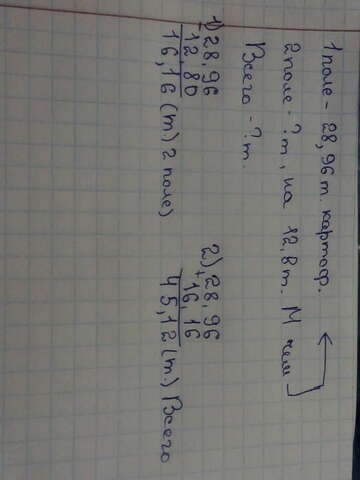 1 поле - 28,96 т. картоф.
2 поле - ? т, на 12,8 т. М чем
Всего - ? т.
1) 28,96
- 12,80
16,16 (т) 2 поле)
2) 28,96
+ 16,16
45,12 (т.) Всего